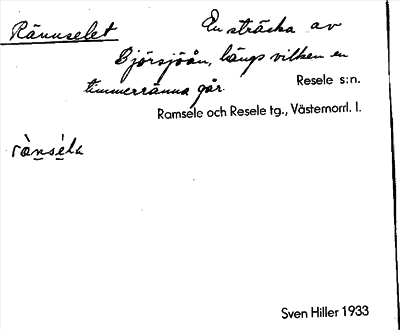 Rännselet
En sträcka av
Björsjöån, längs vilken en
timmerränna går.
Resele s:n.
Ramsele och Resele tg., Västernorrl. l.
rànséla
Sven Hiller 1933